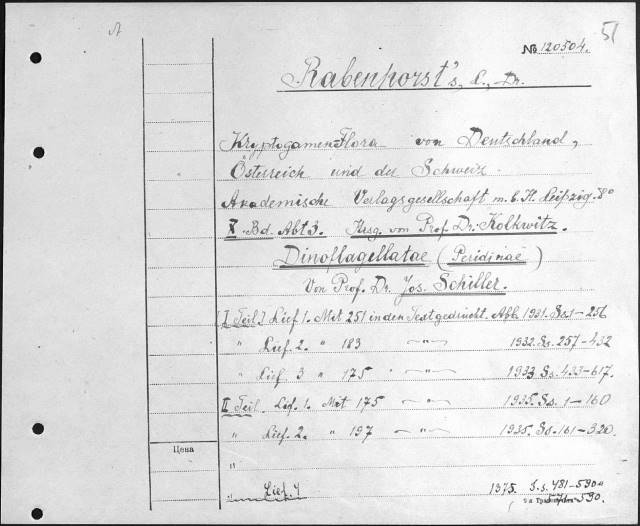 51
№ 120504.
Rabenhorst's, L., Dr.
KryptogamenFlora von Deutschland,
Österreich und der Schweiz.
Akademische Verlagsgesellschaft m.b.H. Leipzig. 8°
X. Bd. Abt 3. Hrsg. von Prof. Dr. Kolkwitz.
Dinoflagellatae (Peridinae)
Von Prof. Dr. Jos. Schiller.
[I Teil] Lief 1. Mit 251 in den Text gedruckt. Abb. 1931. Ss 1-256
" Lief. 2. " 183 - " - 1932. Ss. 257-432
" Lief. 3 " 175 - " - 1933. Ss. 433-617.
II Teil. Lief. 1. Mit 175 - " - 1935. Ss. 1-160
" Lief. 2. " 197 - " - 1935. Ss. 161-320.
Цена
"
" Lief. 4 S.s. 481-590